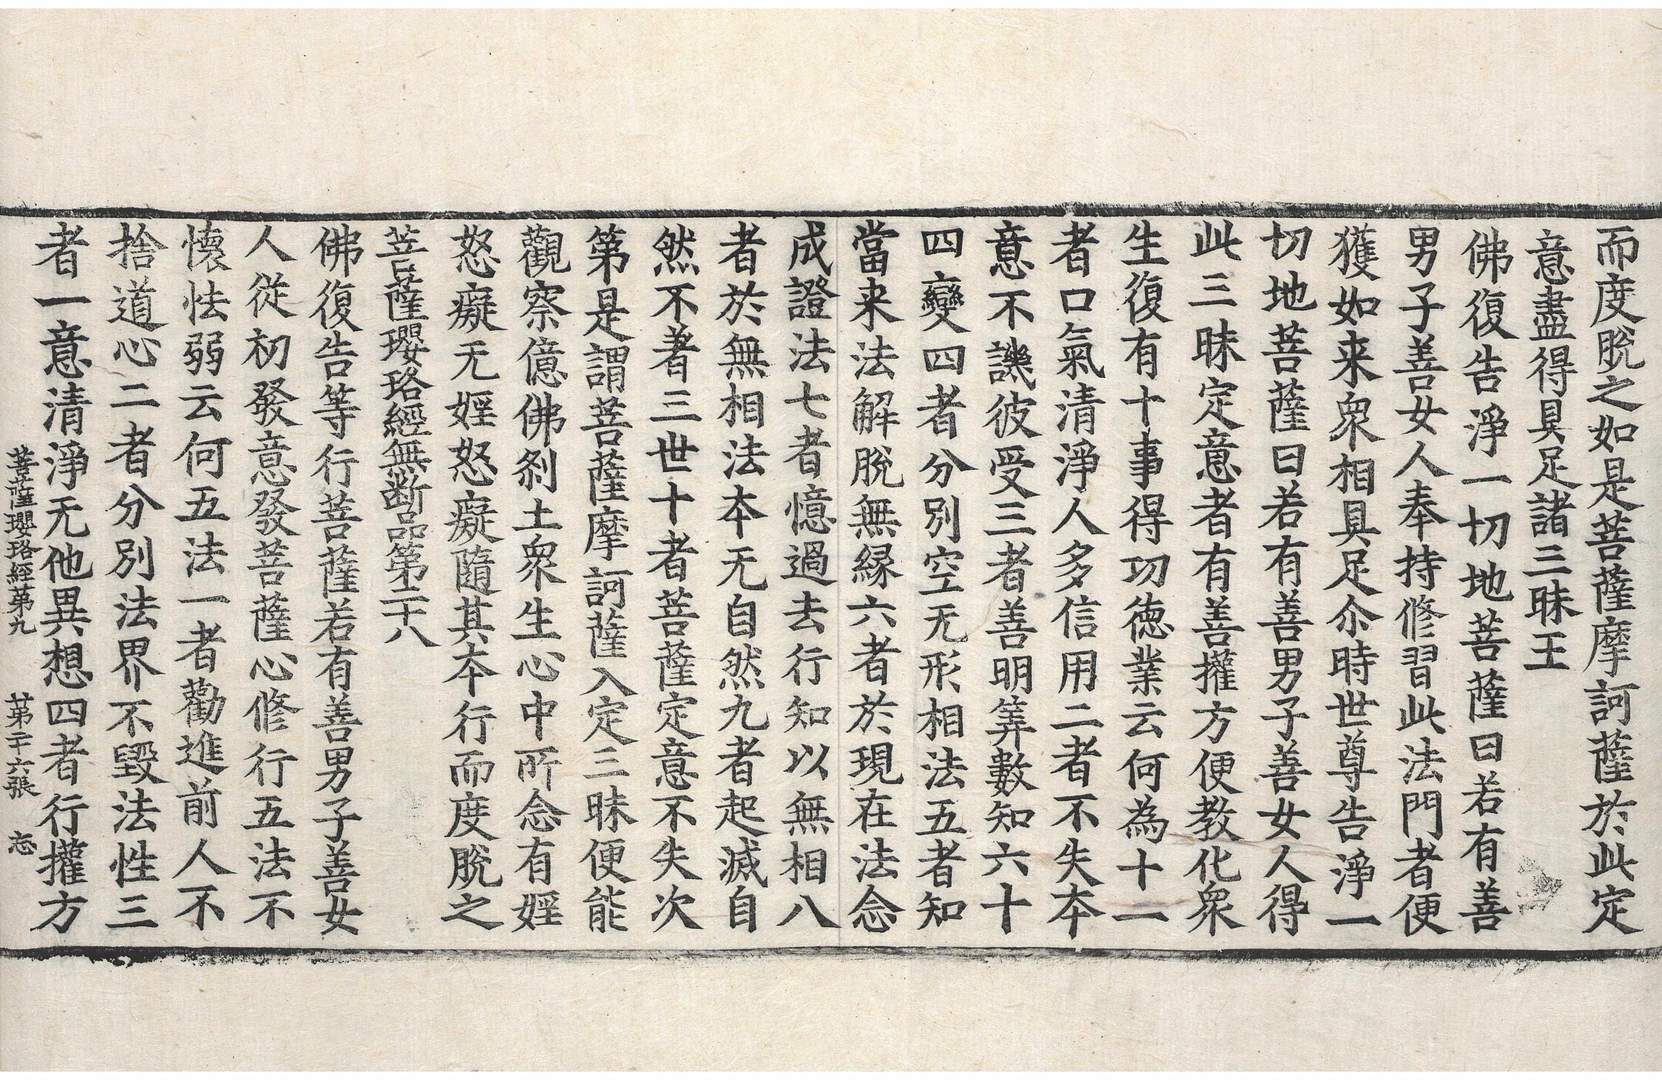 而度脫之如是菩薩摩訶薩於此定
意盡得具足諸三昧王
佛復告淨一切地菩薩曰若有善
男子善女人奉持修習此法門者便
獲如来衆相具足尒時世尊告淨一
切地菩薩曰若有善男子善女人得
此三昧定意者有善權方便教化衆
生復有十事得功德業云何為十一
者口氣清淨人多信用二者不失本
意不譏彼受三者善明筭數知六十
四變四者分別空无形相法五者知
當来法解脫無縁六者於現在法念
成證法七者憶過去行知以無相八
者於無相法本无自然九者起滅自
然不著三世十者菩薩定意不失次
第是謂菩薩摩訶薩入定三昧便能
觀察億佛剎土衆生心中所念有婬
怒癡无婬怒癡隨其本行而度脫之
菩薩瓔珞經無斷品第二十八
佛復告等行菩薩若有善男子善女
人從初發意發菩薩心修行五法不
懷怯弱云何五法一者勸進前人不
捨道心二者分別法界不毀法性三
者一意清淨无他異想四者行權方
菩薩瓔珞經第九 第二十六張 忘